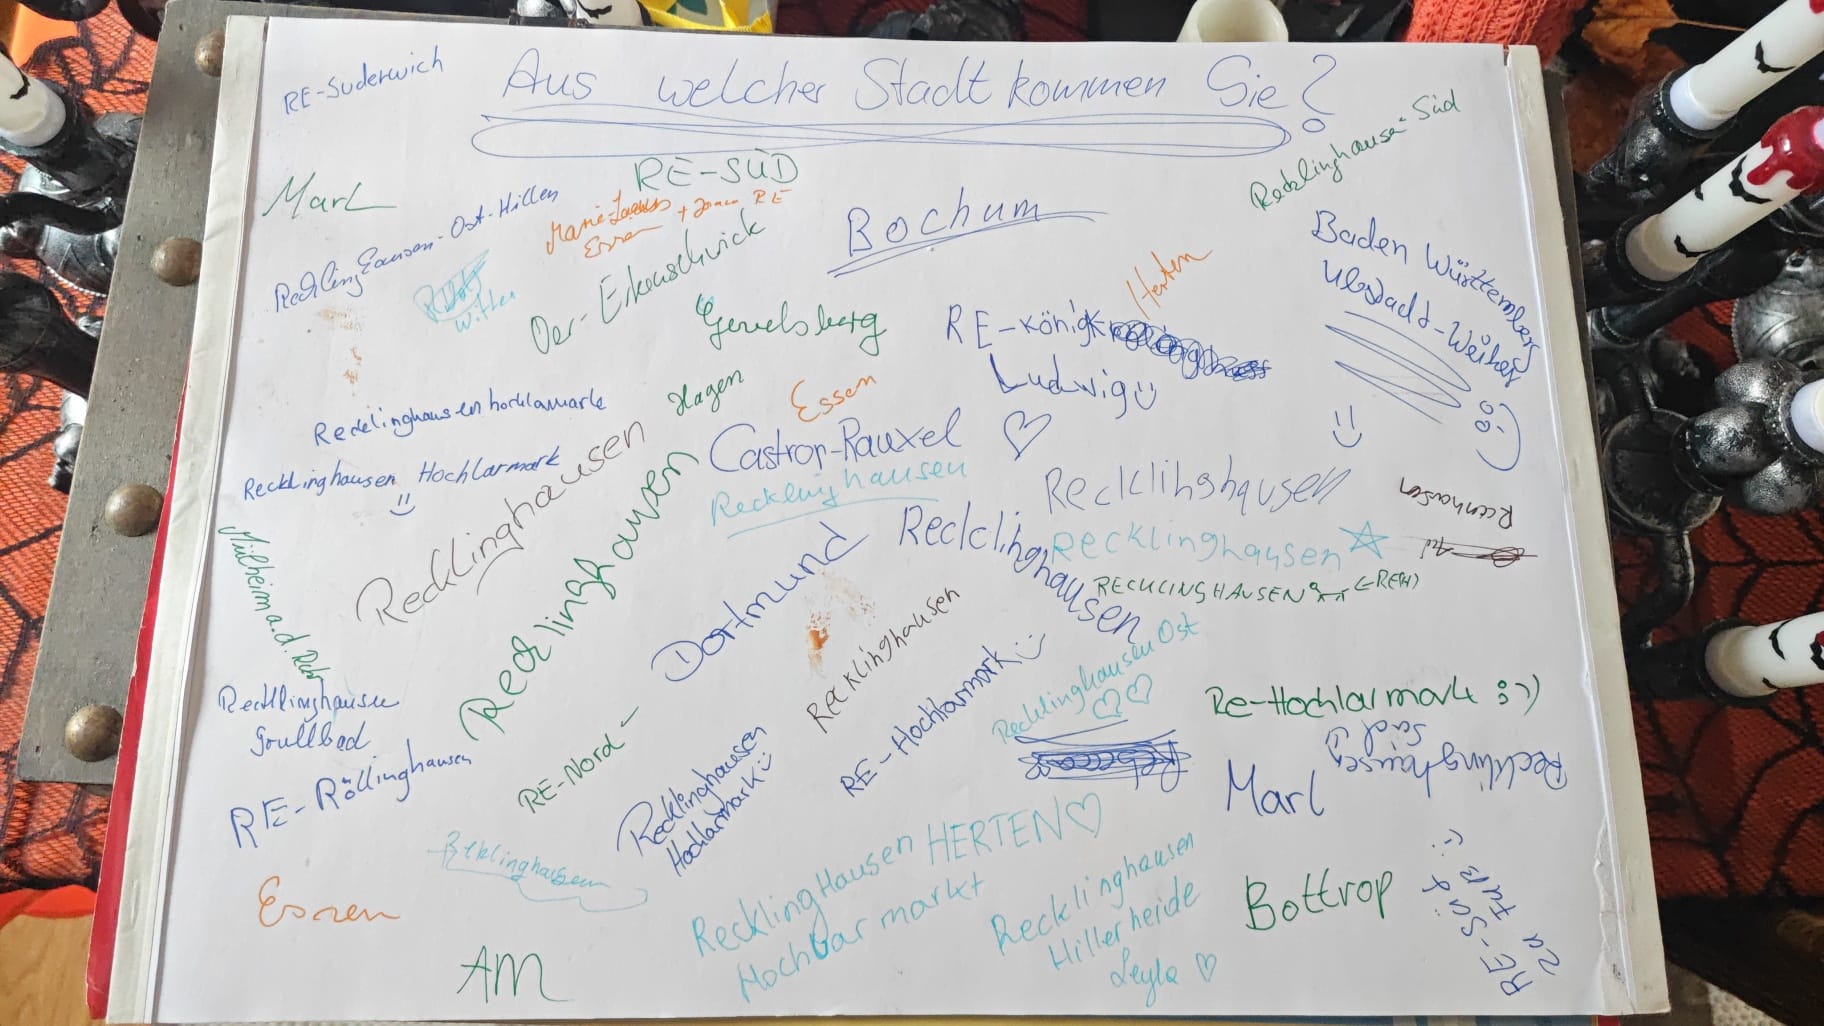 Aus welcher Stadt kommen Sie?
RE-Suderwich
Recklinghausen-Süd
RE-SÜD
Marl
Recklinghausen-Ost-Hillen
Essen
+
RE
Bochum
Baden Württemberg
Ubstadt-Weiher
Witten
Oer-Erkenschwick
Herten
Gevelsberg
RE-König
Ludwig
Hagen
Essen
Recklinghausen hochlamark
Castrop-Rauxel
Recklinghausen Hochlarmark
Recklinghausen
Recklinghausen
Recklinghausen
Recklinghausen
Recklinghausen
Recklinghausen
RECKLINGHAUSEN
Mülheim a.d. Ruhr
Dortmund
Recklinghausen
Recklinghausen Ost
Recklinghausen
Grullbad
RE-Hochlarmark
Re-Hochlarmark :)
RE-Nord
Recklinghausen
Süd
RE-Röllinghausen
Recklinghausen
Hochlarmark
Marl
Recklinghausen HERTEN
Hochbarmarkt
Recklinghausen
Hillerheide
Leyla
Bottrop
RE-Süd
zu Fuß :)
Essen
AM